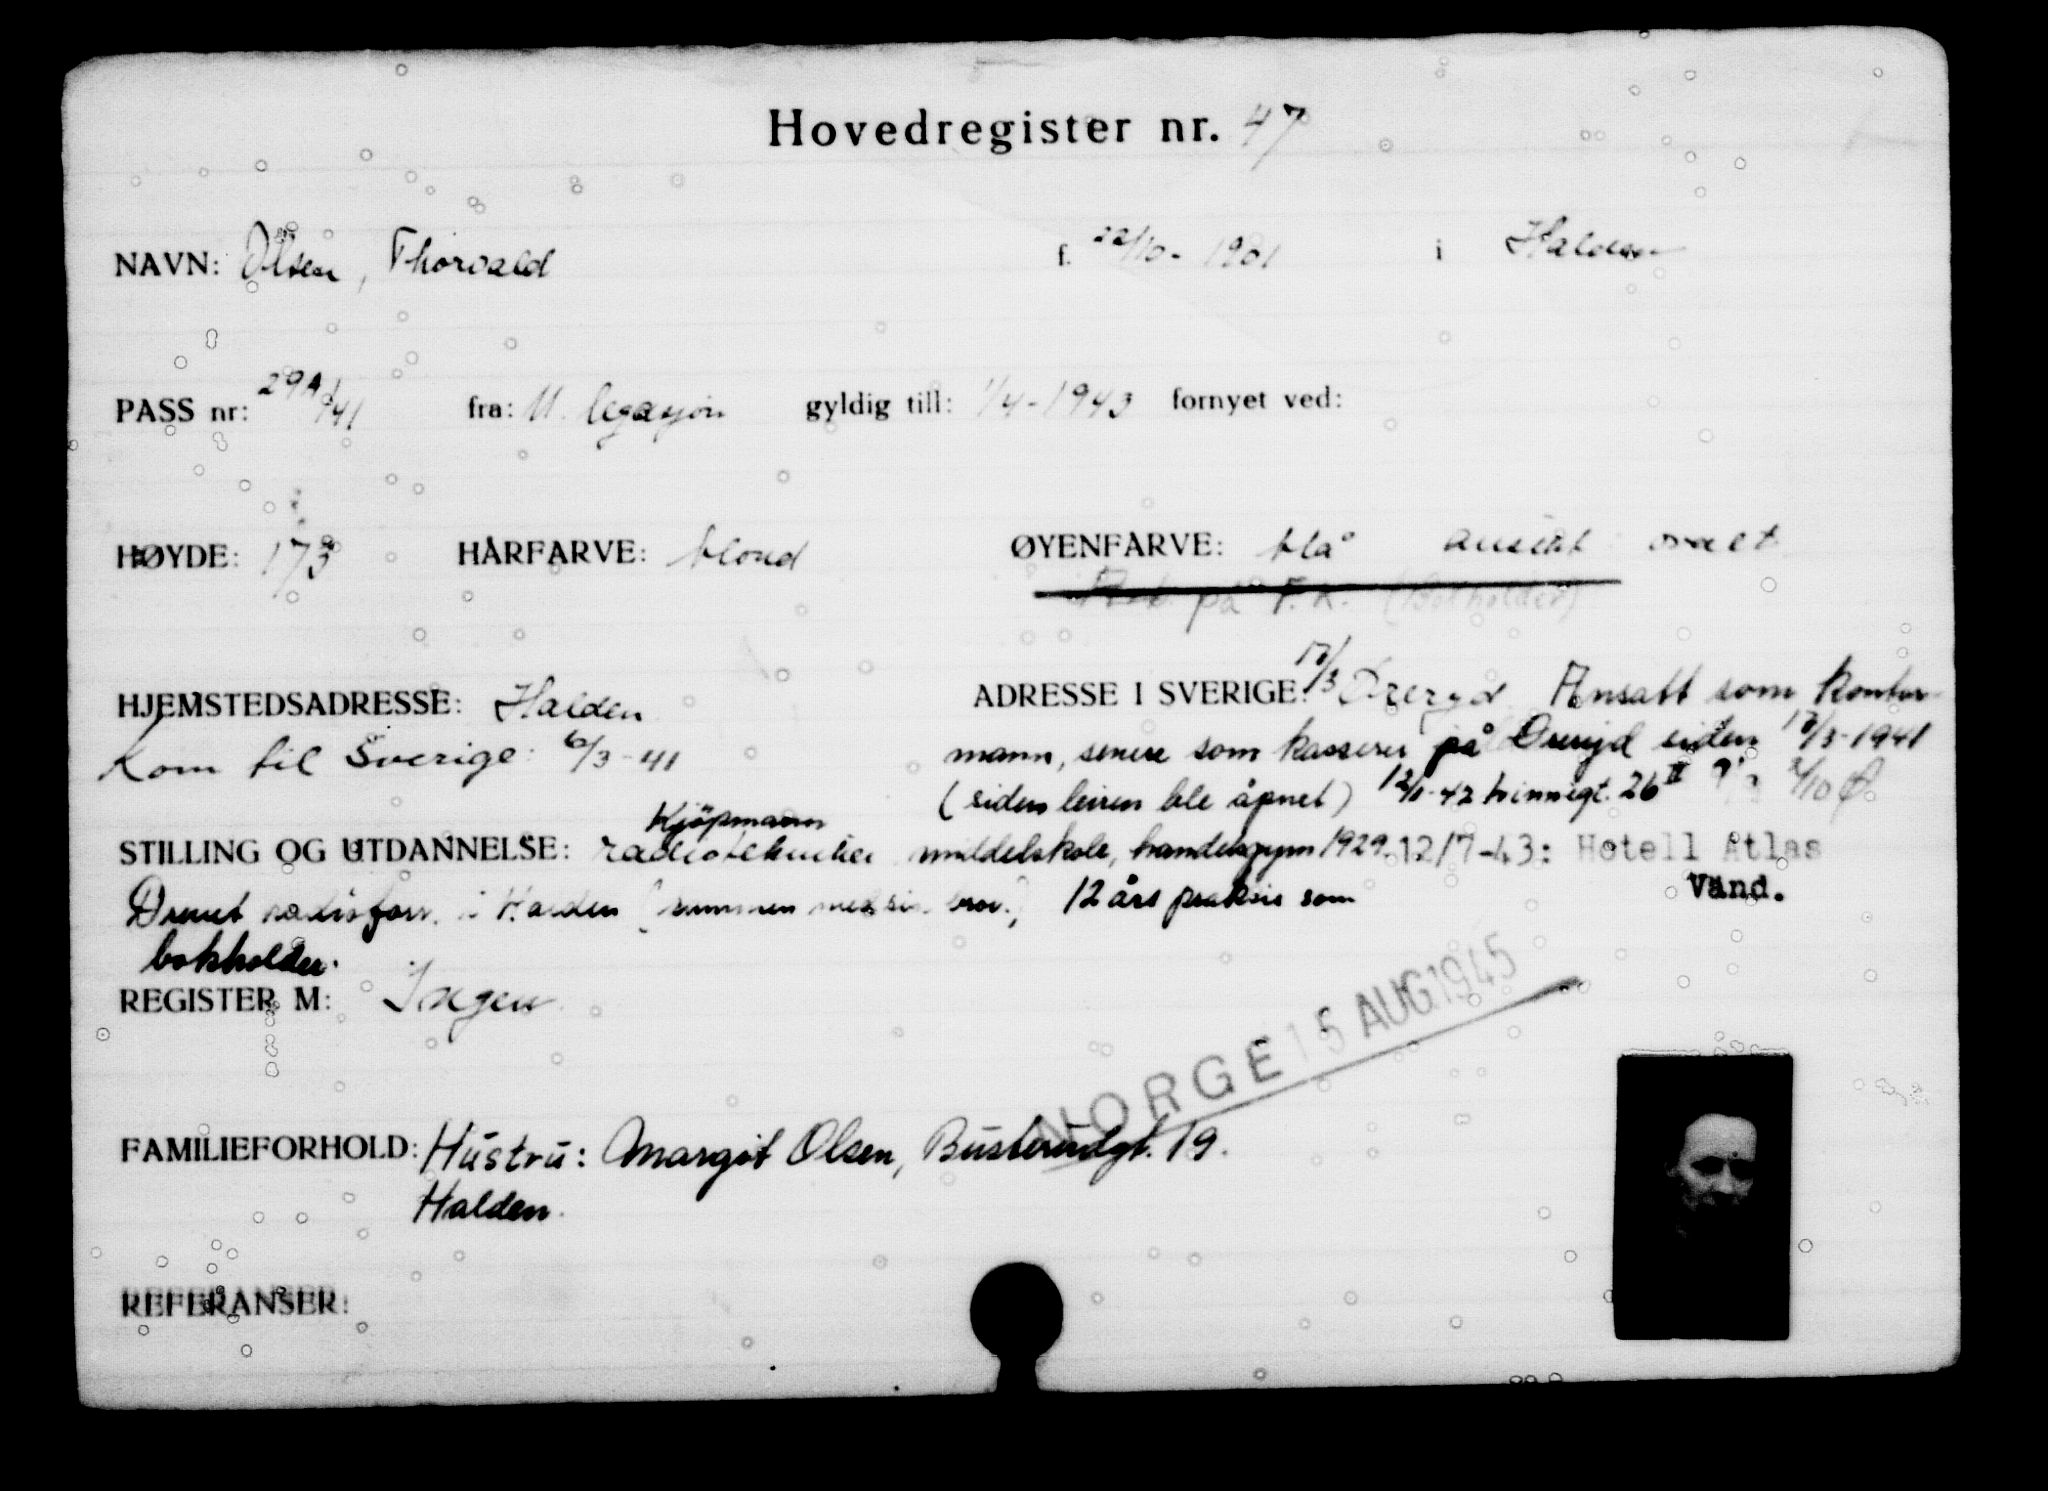 Hovedregister nr. 47
NAVN: Olsen, Thorvald f. 22/10 - 1901 i Halden
PASS nr: 29A/41 fra: N. legasjon gyldig till: 1/4 - 1943 fornyet ved:
HØYDE: 173 HÅRFARVE: blond ØYENFARVE: blå ansikt ovalt
på F.K. (Bokholder)
HJEMSTEDSADRESSE: Halden ADRESSE I SVERIGE: 17/3 Öreryd Ansatt som kontor-
Kom til Sverige: 6/3 - 41 mann, senere som kasserer på Öreryd siden 17/3-1941
(siden leiren ble åpnet) 26 II 2/10 Ø
Kjöpmann
STILLING OG UTDANNELSE: radiotekniker middelskole, handelsgym 1929. 12/7-43: Hotell Atlas
Drevet radioforr. i Halden (sammen med sin bror.) 12 års praksis som Vand.
bokholder.
REGISTER M: Ingen
NORGE 15 AUG 1945
FAMILIEFORHOLD: Hustru: Margit Olsen, Busterudgt. 19.
Halden.
REFERANSER: